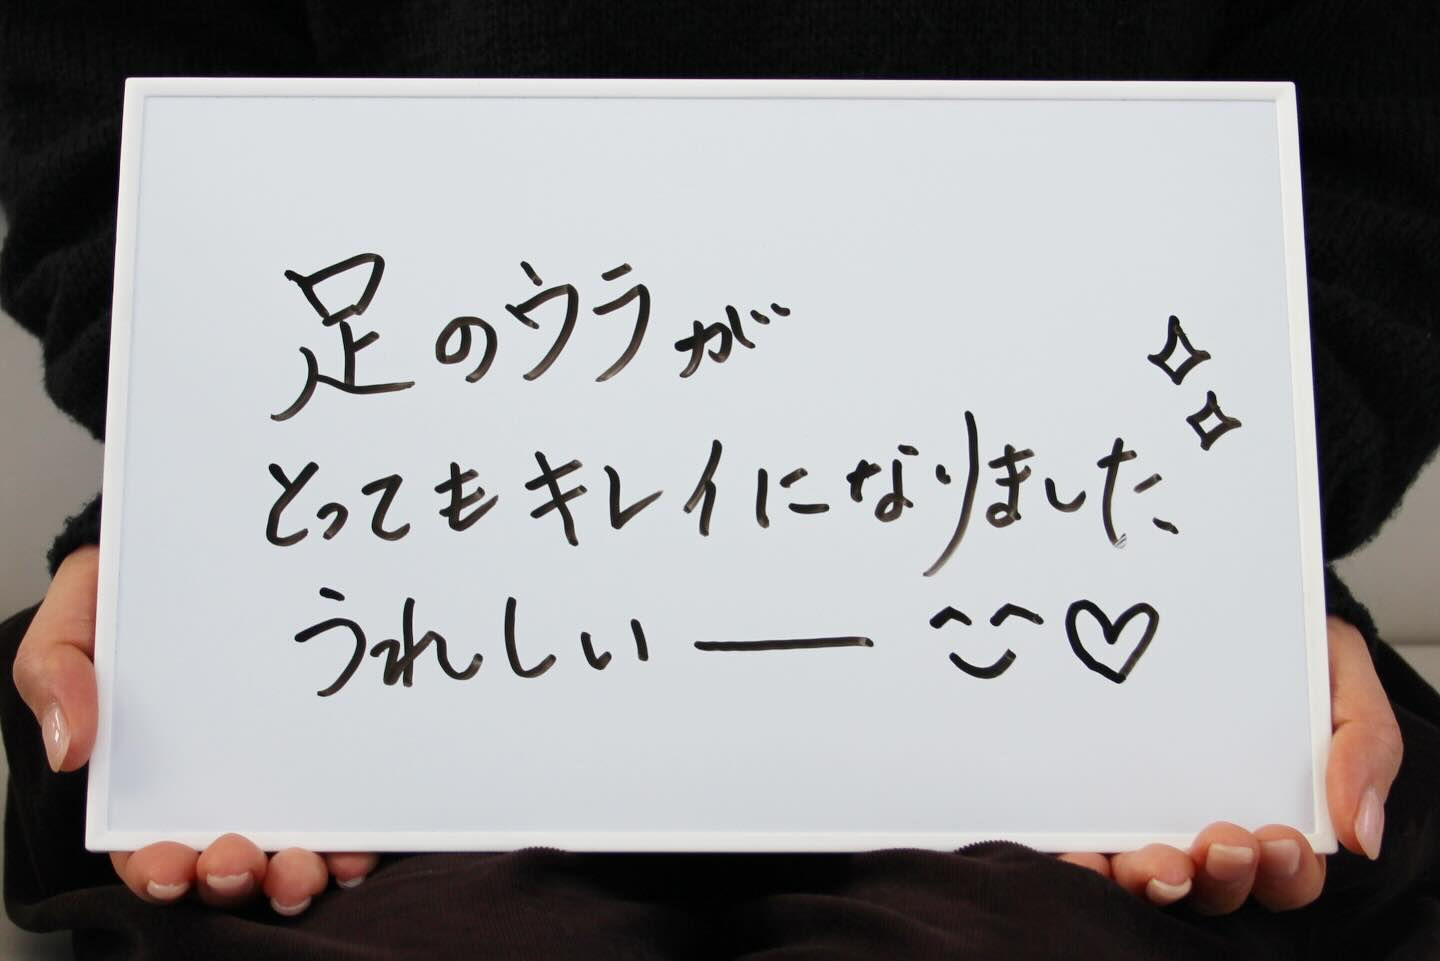 足のウラが
とってもキレイになりました
うれしいー